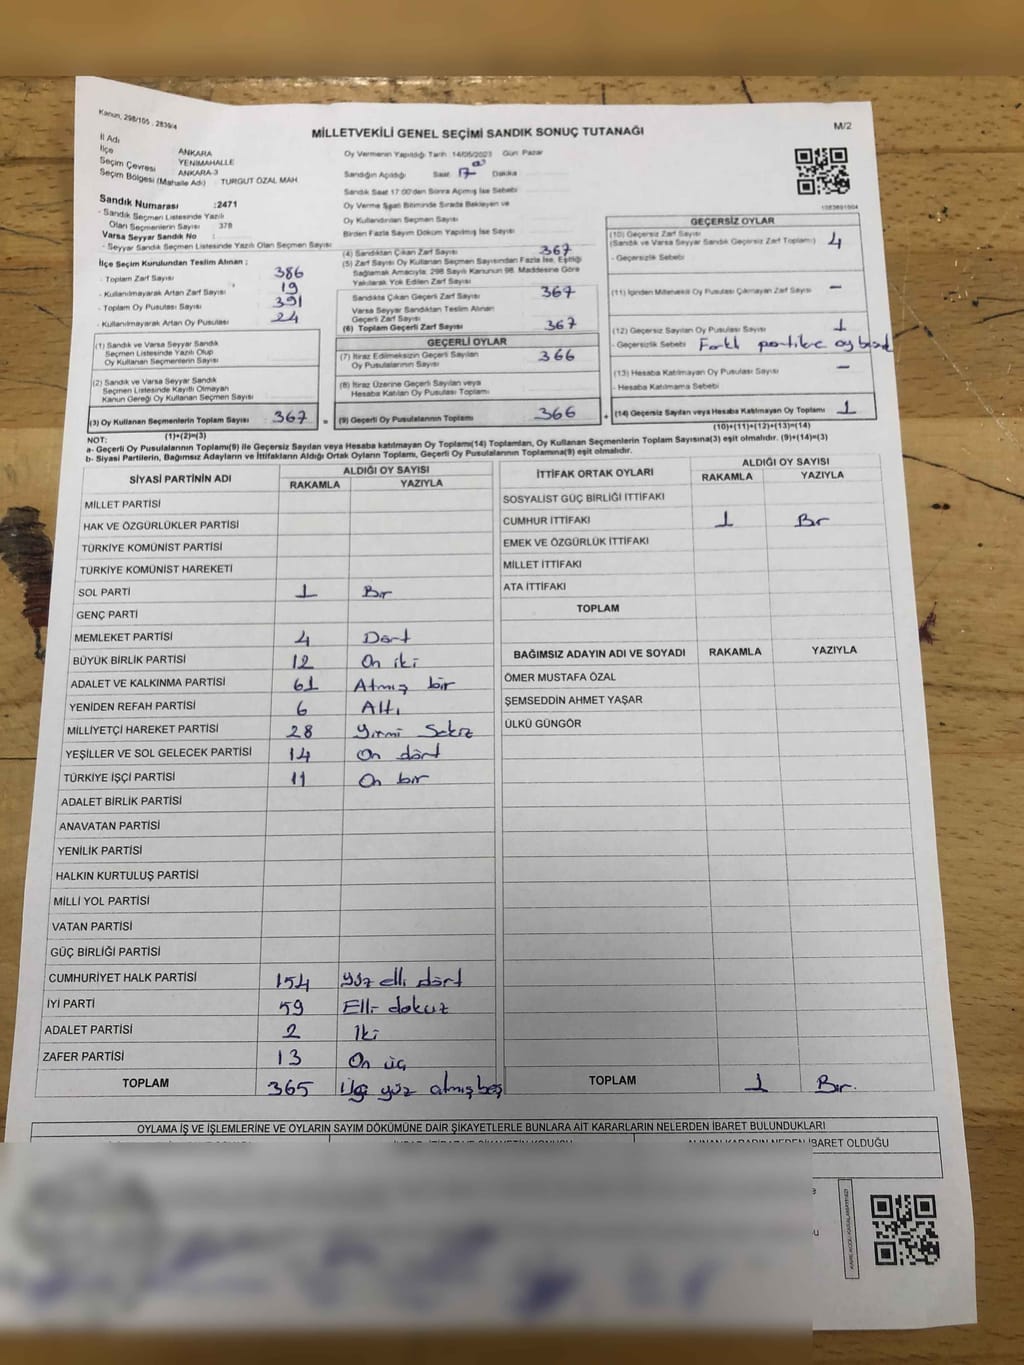 Kanun, 298/105 , 2839/4
MİLLETVEKİLİ GENEL SEÇİMİ SANDIK SONUÇ TUTANAĞI
M/2
İl Adı ANKARA
İlçe YENİMAHALLE
Seçim Çevresi ANKARA-3
Seçim Bölgesi (Mahalle Adı) : TURGUT ÖZAL MAH
Sandık Numarası :2471
- Sandık Seçmen Listesinde Yazılı
Olan Seçmenlerin Sayısı 378
Varsa Seyyar Sandık No :
- Seyyar Sandık Seçmen Listesinde Yazılı Olan Seçmen Sayısı
İlçe Seçim Kurulundan Teslim Alınan ;
- Toplam Zarf Sayısı 386
- Kullanılmayarak Artan Zarf Sayısı 19
- Toplam Oy Pusulası Sayısı 391
- Kullanılmayarak Artan Oy Pusulası 24
(1) Sandık ve Varsa Seyyar Sandık
Seçmen Listesinde Yazılı Olup
Oy Kullanan Seçmenlerin Sayısı
(2) Sandık ve Varsa Seyyar Sandık
Seçmen Listesinde Kayıtlı Olmayan
Kanun Gereği Oy Kullanan Seçmen Sayısı
(3) Oy Kullanan Seçmenlerin Toplam Sayısı 367 =
(1)+(2)=(3)
Oy Vermenin Yapıldığı Tarih 14/05/2023 Gün: Pazar
Sandığın Açıldığı Saat 17 Dakika
Sandık Saat 17:00'den Sonra Açılmış İse Sebebi
Oy Verme Saati Bitiminde Sırada Bekleyen ve
Oy Kullandırılan Seçmen Sayısı
Birden Fazla Sayım Döküm Yapılmış İse Sayısı
(4) Sandıktan Çıkan Zarf Sayısı 367
(5) Zarf Sayısı Oy Kullanan Seçmen Sayısından Fazla İse, Eşitliği
Sağlamak Amacıyla; 298 Sayılı Kanunun 98. Maddesine Göre
Yakılarak Yok Edilen Zarf Sayısı
Sandıkta Çıkan Geçerli Zarf Sayısı 367
Varsa Seyyar Sandıktan Teslim Alınan
Geçerli Zarf Sayısı
(6) Toplam Geçerli Zarf Sayısı 367
GEÇERLİ OYLAR
(7) İtiraz Edilmeksizin Geçerli Sayılan
Oy Pusulalarının Sayısı 366
(8) İtiraz Üzerine Geçerli Sayılan veya
Hesaba Katılan Oy Pusulası Toplamı
(9) Geçerli Oy Pusulalarının Toplamı 366 +
GEÇERSİZ OYLAR
(10) Geçersiz Zarf Sayısı
(Sandık ve Varsa Seyyar Sandık Geçersiz Zarf Toplamı) 4
- Geçersizlik Sebebi
(11) İçinden Milletvekili Oy Pusulası Çıkmayan Zarf Sayısı –
(12) Geçersiz Sayılan Oy Pusulası Sayısı 1
- Geçersizlik Sebebi Farklı partilere oy
(13) Hesaba Katılmayan Oy Pusulası Sayısı –
- Hesaba Katılmama Sebebi
(14) Geçersiz Sayılan veya Hesaba Katılmayan Oy Toplamı 1
(10)+(11)+(12)+(13)=(14)
NOT:
a- Geçerli Oy Pusulalarının Toplamı(9) ile Geçersiz Sayılan veya Hesaba katılmayan Oy Toplamı(14) Toplamları, Oy Kullanan Seçmenlerin Toplam Sayısına(3) eşit olmalıdır. (9)+(14)=(3)
b- Siyasi Partilerin, Bağımsız Adayların ve İttifakların Aldığı Ortak Oyların Toplamı, Geçerli Oy Pusulalarının Toplamına(9) eşit olmalıdır.
SİYASİ PARTİNİN ADI ALDIĞI OY SAYISI
RAKAMLA YAZIYLA
MİLLET PARTİSİ
HAK VE ÖZGÜRLÜKLER PARTİSİ
TÜRKİYE KOMÜNİST PARTİSİ
TÜRKİYE KOMÜNİST HAREKETİ
SOL PARTİ 1 Bir
GENÇ PARTİ
MEMLEKET PARTİSİ 4 Dört
BÜYÜK BİRLİK PARTİSİ 12 On iki
ADALET VE KALKINMA PARTİSİ 61 Atmış bir
YENİDEN REFAH PARTİSİ 6 Altı
MİLLİYETÇİ HAREKET PARTİSİ 28 Yirmi Sekiz
YEŞİLLER VE SOL GELECEK PARTİSİ 14 On dört
TÜRKİYE İŞÇİ PARTİSİ 11 On bir
ADALET BİRLİK PARTİSİ
ANAVATAN PARTİSİ
YENİLİK PARTİSİ
HALKIN KURTULUŞ PARTİSİ
MİLLİ YOL PARTİSİ
VATAN PARTİSİ
GÜÇ BİRLİĞİ PARTİSİ
CUMHURİYET HALK PARTİSİ 154 yüz elli dört
İYİ PARTİ 59 Elli dokuz
ADALET PARTİSİ 2 İki
ZAFER PARTİSİ 13 On üç
TOPLAM 365 Üç yüz atmış beş
İTTİFAK ORTAK OYLARI ALDIĞI OY SAYISI
RAKAMLA YAZIYLA
SOSYALİST GÜÇ BİRLİĞİ İTTİFAKI
CUMHUR İTTİFAKI 1 Bir
EMEK VE ÖZGÜRLÜK İTTİFAKI
MİLLET İTTİFAKI
ATA İTTİFAKI
TOPLAM
BAĞIMSIZ ADAYIN ADI VE SOYADI RAKAMLA YAZIYLA
ÖMER MUSTAFA ÖZAL
ŞEMSEDDİN AHMET YAŞAR
ÜLKÜ GÜNGÖR
TOPLAM 1 Bir.
OYLAMA İŞ VE İŞLEMLERİNE VE OYLARIN SAYIM DÖKÜMÜNE DAİR ŞİKAYETLERLE BUNLARA AİT KARARLARIN NELERDEN İBARET BULUNDUKLARI
ALINAN KARARIN NEDEN İBARET OLDUĞU